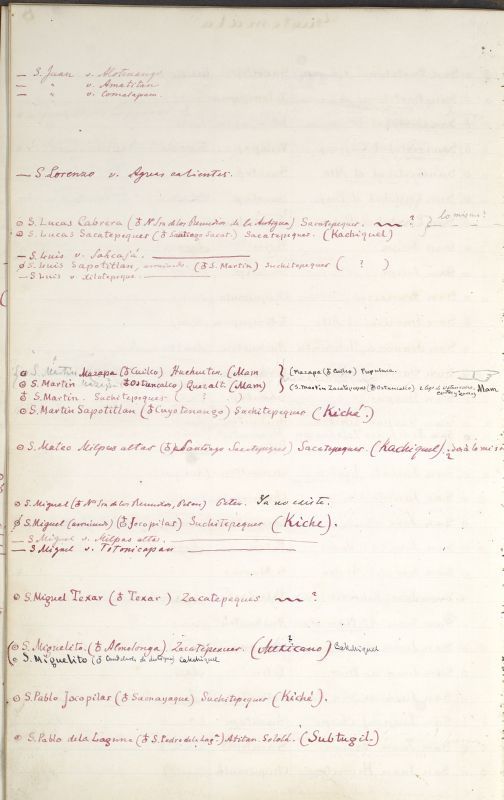 — S. Juan v. Alotenango
— " v. Amatitan
— " v. Comalapam.
— S. Lorenzo v. Aguas calientes.
S. Lucas Cabrera (♁ Na. Sra. de los Remedios de la Antigua) Sacatepequez. ? } lo mismo?
S. Lucas Sacatepequez (♁ Santiago Sacat.) Sacatepequez (Kachiquel)
— S. Luis v. Salcajá.
S. Luis Sapotitlan, arruinado. (♁ S. Martin) Suchitepequez ( ? )
— S. Luis v. Xilotepeque.
S. Martin Mazapa (♁ Cuilco) Huehueten. (Mam } (Mazapa (♁ Cuilco) Pupuluca.
S. Martin (♁ Ostuncalco) Quezalt. (Mam) } (S. Martin Zacatepeques) (♁ Ostuncalco) Mam
♁ S. Martin. Suchitepequez ( ? )
S. Martin Sapotitlan (♁ Cuyotenango) Suchitepequez (Kiché.)
S. Mateo Milpas altas (♁ Santiago Sacatepeques) Sacatepequez. (Kachiquel).
S. Miguel (♁ Na. Sra. de los Remedios, Peten) Peten. Ya no existe.
S. Miguel (arruinado) (♁ Jocopilas) Suchitepequez (Kiche).
— S. Miguel v. Milpas altas.
— S. Miguel v. Totonicapan
S. Miguel Texar (♁ Texar) Zacatepeques ?
S. Miguelito. (♁ Almolonga) Zacatepequez. (Mexicano) ? Cakchiquel
S. Miguelito (♁ Cakchiquel
S. Pablo Jocopilas (♁ Samayaque) Suchitepequez (Kiché).
S. Pablo de la Laguna (♁ S. Pedro de la Laga.) Atitan. Sololá. (Subtugil.)